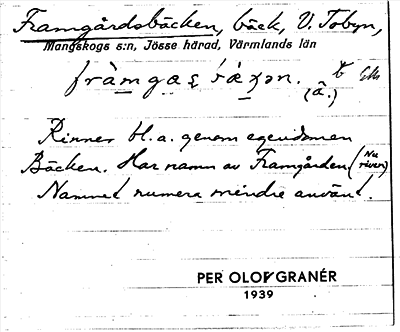 Framgårdsbäcken, bäck, V. Tobyn,
Mangskogs s:n, Jösse härad, Värmlands län
(â.)
Rinner bl. a. genom egendomen
Bäcken. Har namn av Framgården. (Nu riven)
Namnet numera mindre använt.
PER OLOF GRANÉR
1939